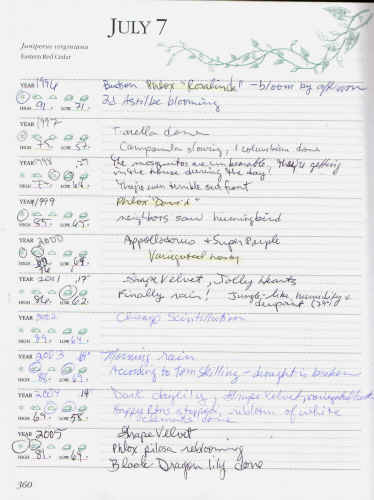 JULY 7
Juniperus virginiana
Eastern Red Cedar
YEAR 1996 Phlox "Rosalinde" - bloom by afternoon
HIGH 91° LOW 71° 3d Astilbe blooming
YEAR 1997 Tiarella done
HIGH 75° LOW 57° Campanula glowing, 1 columbine done
YEAR 1998 The mosquitos are unbearable, They're getting
in the house during the day!
HIGH LOW They're even terrible out front
YEAR 1999 Phlox "David"
HIGH LOW neighbors saw hummingbird
YEAR 2000 Appollodorus + Super Purple
HIGH LOW Variegated
YEAR 2001 Grape Velvet, Jolly Hearts
HIGH 84° LOW 62° Finally rain! Jungle-like humidity &
YEAR 2002 Chicago Scintillation
HIGH 89° LOW 64°
YEAR 2003 Morning rain
HIGH LOW According to Tom Skilling - drought is broken
YEAR 2004 Dark daylily, Grape Velvet,
HIGH 69° LOW 58° stopped, rebloom of white
clematis done
YEAR 2005 Grape Velvet
HIGH 81° LOW 64° Phlox pilosa reblooming
Black Dragon lily done
360